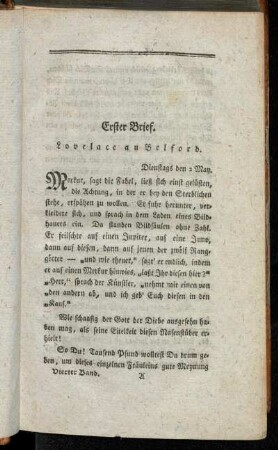 Erster Brief.
Lovelace an Belford.
Dienstags den 2 May.
Merkur, sagt die Fabel, ließ sich einst gelüsten,
die Achtung, in der er bey den Sterblichen
stehe, erspähen zu wollen. Er fuhr herunter, ver-
kleidete sich, und sprach in dem Laden eines Bild-
hauers ein. Da standen Bildsäulen ohne Zahl.
Er feilschte auf einen Jupiter, auf eine Juno,
dann auf diesen, dann auf jenen der zwölf Rang-
götter — „und wie theuer,“ sagt' er endlich, indem
er auf einen Merkur hinwies, „laßt Ihr diesen hier?“
„Herr,“ sprach der Künstler, „nehmt mir einen von
„den andern ab, und ich geb' Euch diesen in den
„Kauf.“
Wie schaafig der Gott der Diebe ausgesehn ha-
ben mag, als seine Eitelkeit diesen Nasenstüber er-
hielt!
So Du! Tausend Pfund wolltest Du drum ge-
ben, um dieses einzelnen Fräuleins gute Meynung
Vierter Band. A